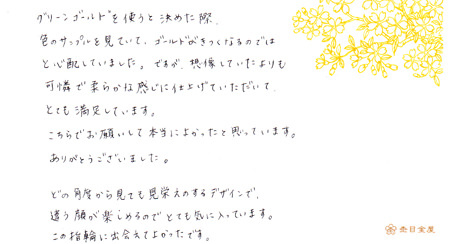 グリーンゴールドを使うと決めた際、
色のサンプルを見ていて、ゴールドがきつくなるのでは
と心配していました。ですが、想像していたよりも
可憐で柔らかな感じに仕上げていただいて、
とても満足しています。
こちらでお願いして本当によかったと思っています。
ありがとうございました。
どの角度から見ても見栄えのするデザインで、
違う顔が楽しめるのでとても気に入っています。
この指輪に出会えてよかったです。
杢目金屋